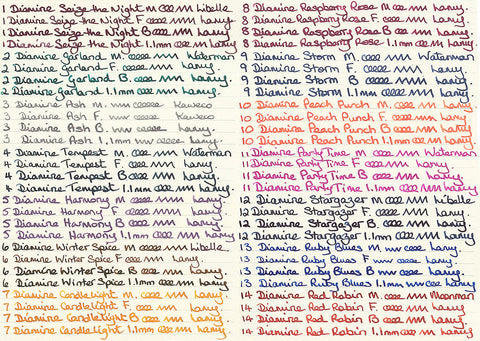 1 Diamine Seize the Night M. Libelle
1 Diamine Seize the Night F. Lamy.
1 Diamine Seize the Night B Lamy.
1 Diamine Seize the Night 1.1mm Lamy
2 Diamine Garland M. Waterman
2 Diamine Garland F. Lamy.
2 Diamine Garland B Lamy.
2 Diamine Garland 1.1mm Lamy.
3 Diamine Ash M. Kaweco
3 Diamine Ash F. Kaweco
3 Diamine Ash B. Lamy.
3 Diamine Ash 1.1mm Lamy.
4 Diamine Tempest M. Waterman
4 Diamine Tempest F. Lamy.
4 Diamine Tempest B Lamy.
4 Diamine Tempest 1.1mm Lamy.
5 Diamine Harmony M. Lamy.
5 Diamine Harmony F. Lamy.
5 Diamine Harmony B Lamy.
5 Diamine Harmony 1.1mm Lamy.
6 Diamine Winter Spice M. Libelle.
6 Diamine Winter Spice F. Lamy.
6 Diamine Winter Spice B Lamy.
6 Diamine Winter Spice 1.1mm Lamy.
7 Diamine Candle Light M. Lamy.
7 Diamine Candle Light F. Lamy.
7 Diamine Candle Light B Lamy.
7 Diamine Candle Light 1.1mm Lamy.
8 Diamine Raspberry Rose M. Lamy.
8 Diamine Raspberry Rose F. Lamy.
8 Diamine Raspberry Rose B Lamy.
8 Diamine Raspberry Rose 1.1mm Lamy.
9 Diamine Storm M. Waterman
9 Diamine Storm F. Lamy.
9 Diamine Storm B Lamy.
9 Diamine Storm 1.1mm Lamy.
10 Diamine Peach Punch M. Lamy.
10 Diamine Peach Punch F. Lamy.
10 Diamine Peach Punch B Lamy.
10 Diamine Peach Punch 1.1mm Lamy.
11 Diamine Party Time M. Waterman
11 Diamine Party Time F. Lamy.
11 Diamine Party Time B Lamy.
11 Diamine Party Time 1.1mm Lamy
12 Diamine Stargazer M Libelle
12 Diamine Stargazer F. Lamy.
12 Diamine Stargazer B Lamy.
12 Diamine Stargazer 1.1mm Lamy.
13 Diamine Ruby Blues M Lamy.
13 Diamine Ruby Blues F Lamy.
13 Diamine Ruby Blues B Lamy.
13 Diamine Ruby Blues 1.1mm Lamy.
14 Diamine Red Robin M. Moonman
14 Diamine Red Robin F. Lamy.
14 Diamine Red Robin B Lamy.
14 Diamine Red Robin 1.1mm Lamy.